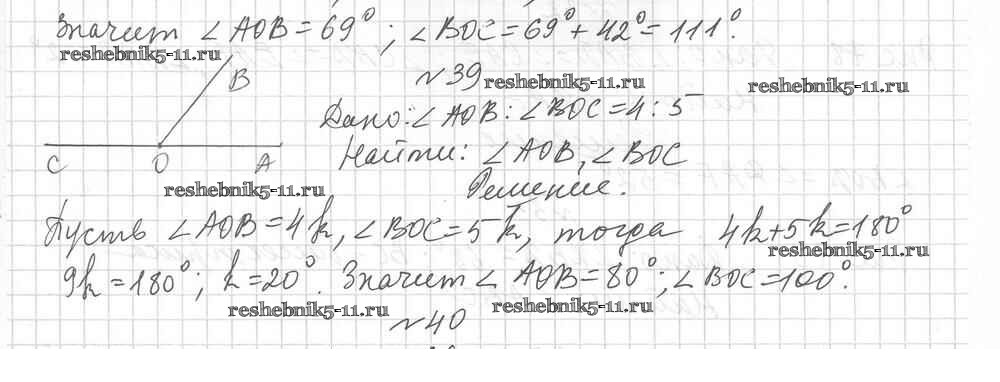 Значит ∠AOB = 69°; ∠BOC = 69° + 42° = 111°.
reshebnik5-11.ru
B
№39
reshebnik5-11.ru
reshebnik5-11.ru
Дано: ∠AOB : ∠BOC = 4 : 5
C O A
Найти: ∠AOB, ∠BOC
reshebnik5-11.ru
Решение.
Пусть ∠AOB = 4k, ∠BOC = 5k, тогда 4k + 5k = 180°
reshebnik5-11.ru
9k = 180°; k = 20°. Значит ∠AOB = 80°; ∠BOC = 100°.
reshebnik5-11.ru
reshebnik5-11.ru
№40
reshebnik5-11.ru